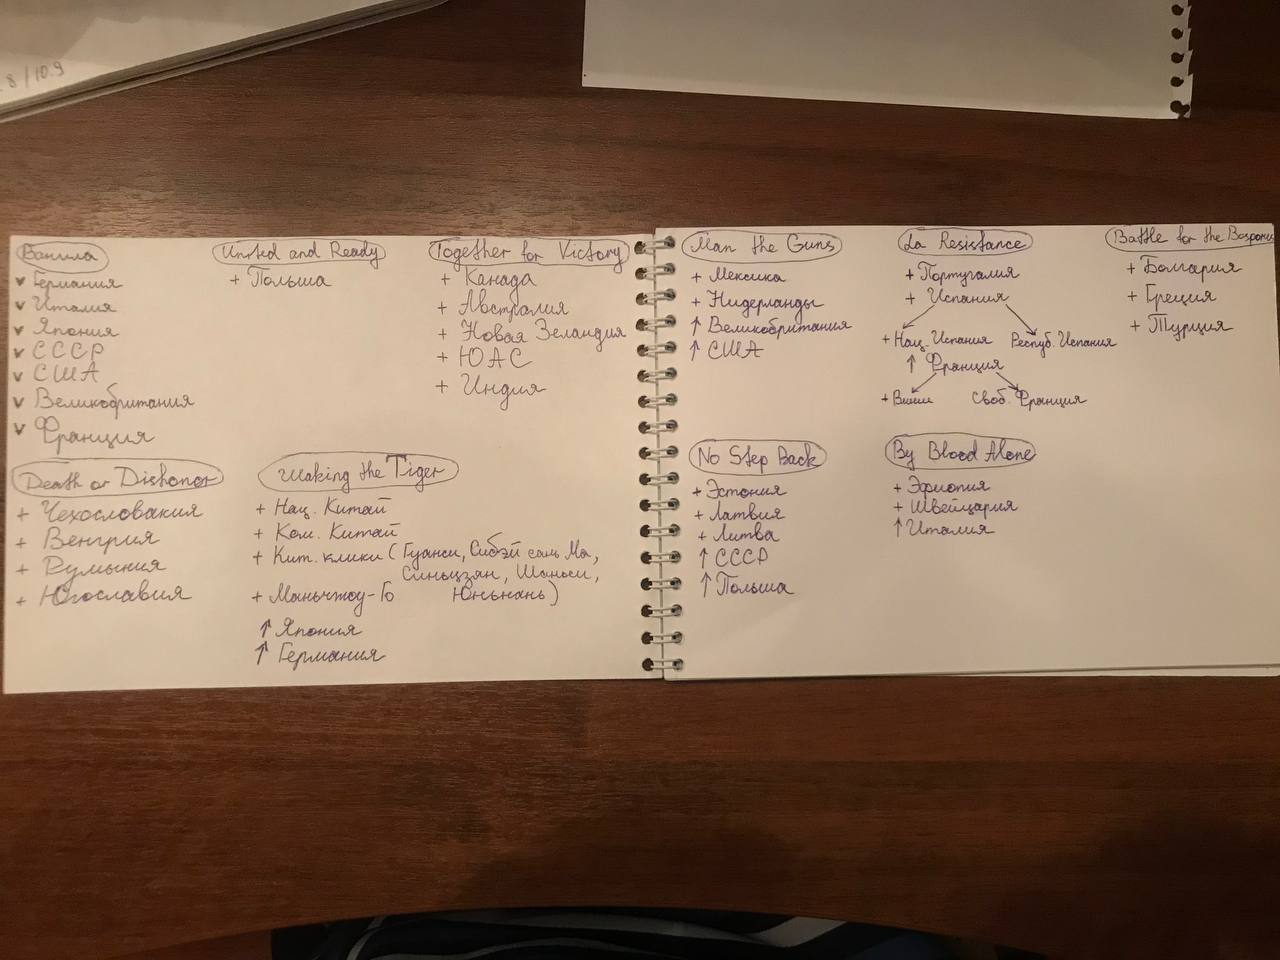 8/10.9
Ванила
✓ Германия
✓ Италия
✓ Япония
✓ СССР
✓ США
✓ Великобритания
✓ Франция
United and Ready
+ Польша
Together for Victory
+ Канада
+ Австралия
+ Новая Зеландия
+ ЮАС
+ Индия
Death or Dishonor
+ Чехословакия
+ Венгрия
+ Румыния
+ Югославия
Waking the Tiger
+ Нац. Китай
+ Ком. Китай
+ Кит. клики (Гуанси, Сибэй сань Ма,
Синьцзян, Шаньси,
+ Маньчжоу-Го Юньнань)
↑ Япония
↑ Германия
Man the Guns
+ Мексика
+ Нидерланды
↑ Великобритания
↑ США
La Resistance
+ Португалия
+ Испания
+ Нац. Испания Респуб. Испания
↑ Франция
+ Виши Своб. Франция
Battle for the Bosporus
+ Болгария
+ Греция
+ Турция
No Step Back
+ Эстония
+ Латвия
+ Литва
↑ СССР
↑ Польша
By Blood Alone
+ Эфиопия
+ Швейцария
↑ Италия